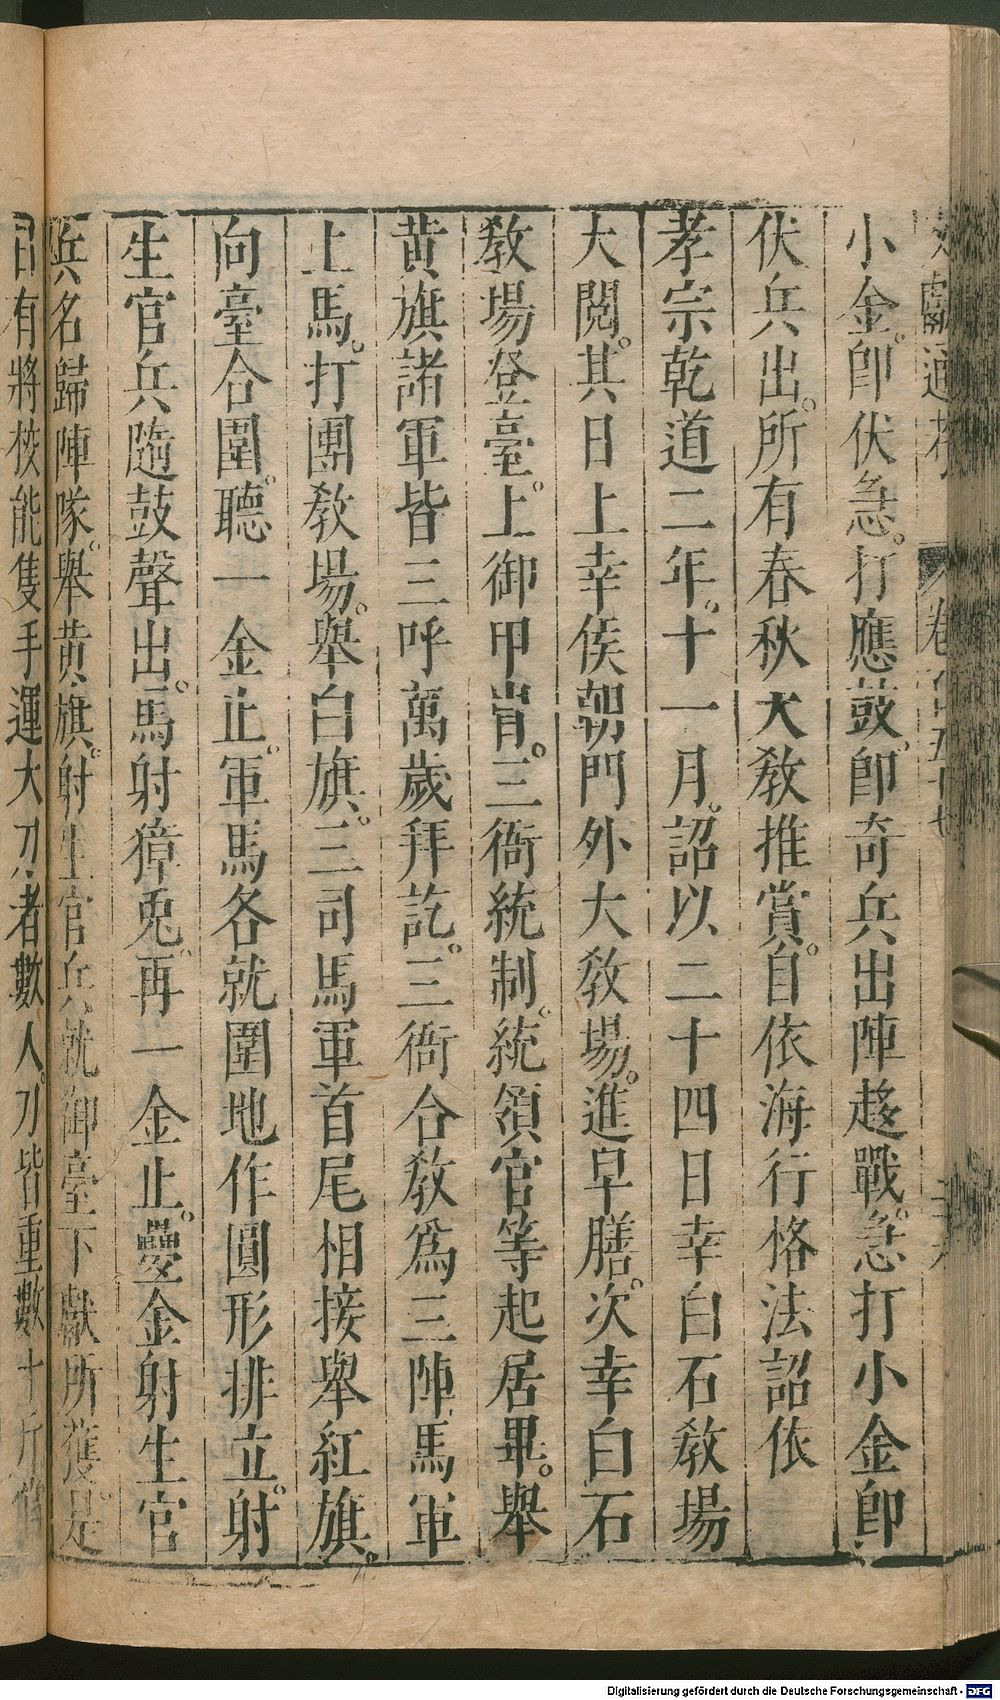 文獻通考 卷一百五十七
小金。卽伏急。打應鼓。卽奇兵出陣趍戰。急打小金卽
伏兵出。所有春秋大教推賞。自依海行格法詔依
孝宗乾道二年。十一月。詔以二十四日幸白石教場
大閱。其日上幸候朝門外大教場。進早膳。次幸白石
教場登臺。上御甲胄。三衙統制。統領官等起居畢。舉
黄旗諸軍皆三呼萬歲拜訖。三衙合教爲三陣馬軍
上馬。打團教場。舉白旗。三司馬軍首尾相接舉紅旗。
向臺合圍。聽一金止。軍馬各就圍地作圓形排立。射
生官兵隨鼓聲出。馬射獐兎。再一金止。疊金射生官
兵名歸陣隊。舉黄旗。射生官兵就御臺下獻所獲。是
日有將校能隻手運大刀者數人。刀皆重數十斤
Digitalisierung gefördert durch die Deutsche Forschungsgemeinschaft - DFG